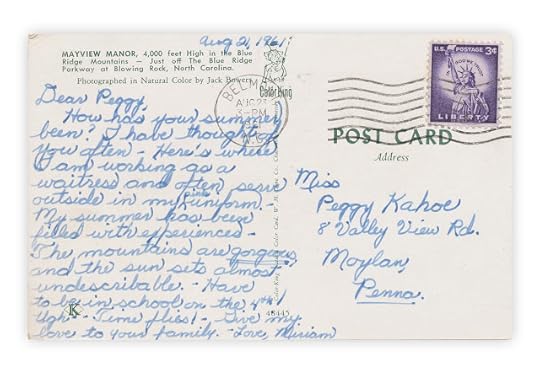 Aug 21, 1961
MAYVIEW MANOR, 4,000 feet High in the Blue
Ridge Mountains — Just off The Blue Ridge
Parkway at Blowing Rock, North Carolina.
Photographed in Natural Color by Jack Bowers
Dear Peggy,
How has your summer
been? I have thought of
you often - Here's where
I am working as a
waitress and often serve
outside in my uniform. -
My summer has been
filled with experiences -
The mountains are gorgeous
and the sun sets almost
undescribable. - Have
to be in school on the 4th!
Ugh - Time flies! - Give my
love to your family. - Love, Miriam
K
48445
ColorKing
AUG 21
PM
U.S. POSTAGE 3¢
IN GOD WE TRUST
LIBERTY
POST CARD
Address
Miss
Peggy Kahoe
8 Valley View Rd.
Moylan,
Penna.